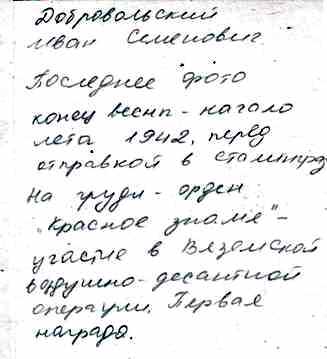 Добровольский
Иван Семенович
Последнее фото
конец весны - начало
лета 1942, перед
отправкой в Сталинград
На груди - орден
"Красное знамя" -
участие в Вяземской
воздушно-десантной
операции. Первая
награда.